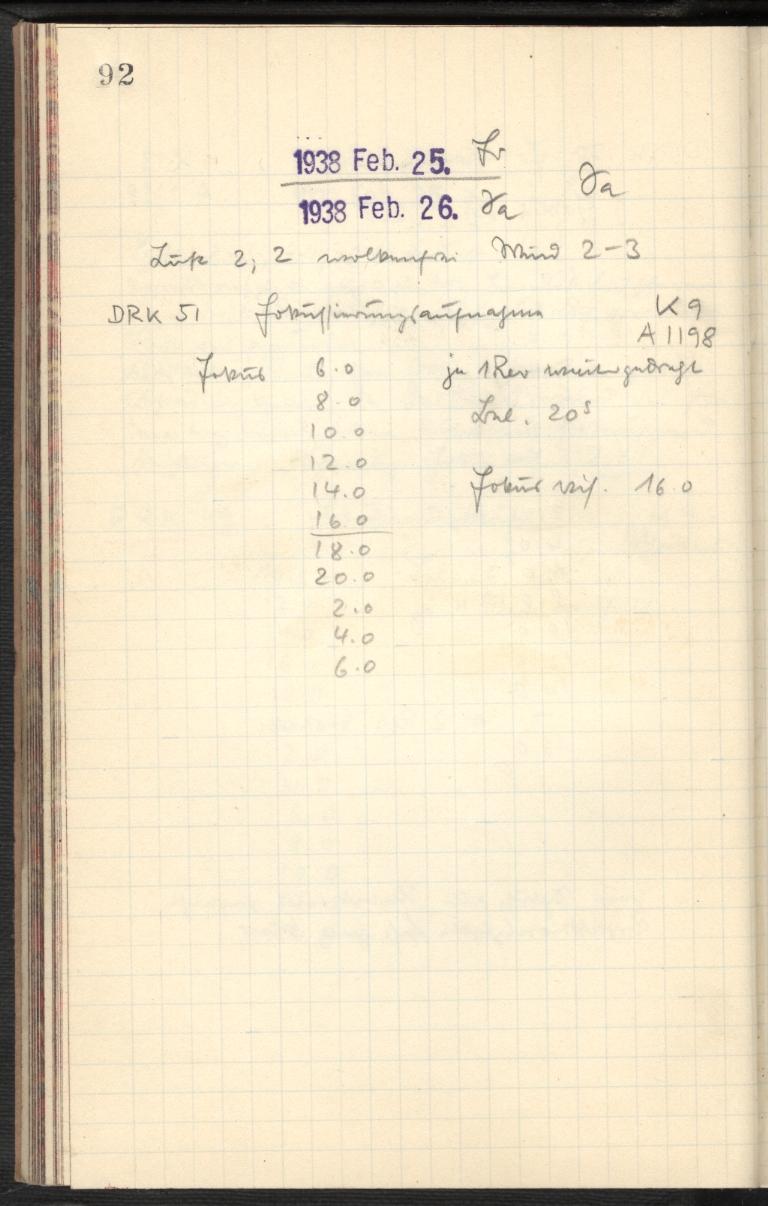 92
1938 Feb. 25. Fr
1938 Feb. 26. Sa Ja
Luft 2; 2 wolkenfrei Wind 2-3
DRK 51 Fokussierungsaufnahme K 9
A 1198
Fokus 6.0 je 1 Rev weitergedreht
8.0
Bel. 20ˢ
10.0
12.0
14.0 Fokus vis. 16.0
16.0
18.0
20.0
2.0
4.0
6.0